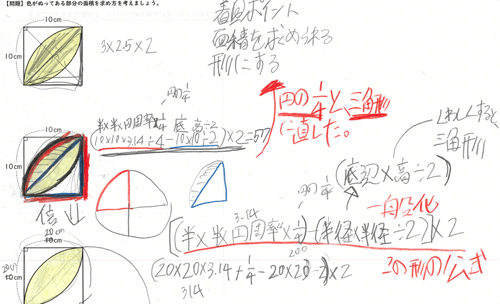 【問題】色がぬってある部分の面積を求め方を考えましょう。
10cm
10cm
3×25×2
着目ポイント
面積を求められる
形にする
円の1/4
円の1/4と、三角形
に直した。
半×半×円周率 底 高÷2
(10×10×3.14÷4−10×10÷2)×2=57
10cm
10cm
三角形
倍↓
(底辺×高÷2)
一般化
円の1/4
3.14
[(半×半×円周率×1/4)−(半径×半径÷2)]×2
200
この形の公式
20cm
10cm
20cm
10cm
(20×20×3.14÷4−20×20÷2)×2
314